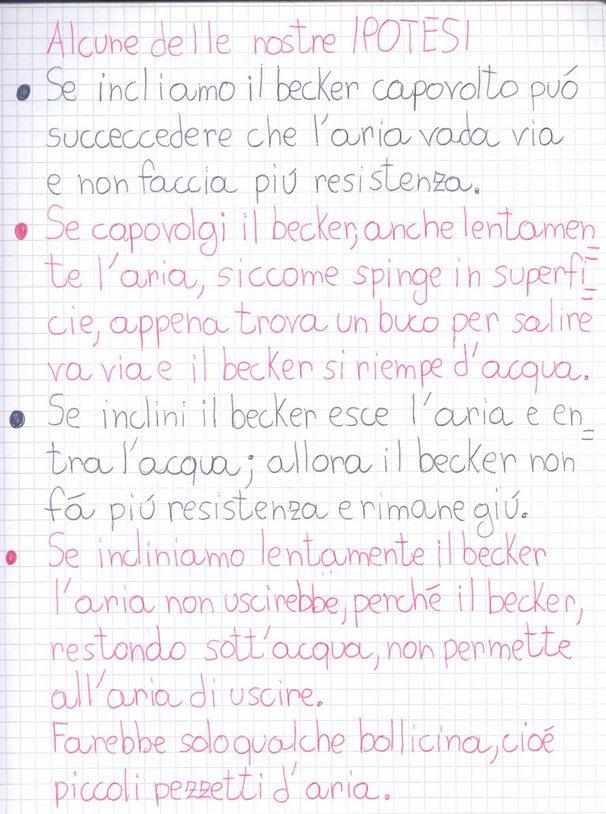 Alcune delle nostre IPOTESI
• Se incliamo il becker capovolto puó
succeccedere che l'aria vada via
e non faccia piú resistenza.
• Se capovolgi il becker, anche lentamen
te l'aria, siccome spinge in superfi
cie, appena trova un buco per salire
va via e il becker si riempe d'acqua.
• Se inclini il becker esce l'aria e en
tra l'acqua; allora il becker non
fá piú resistenza e rimane giú.
• Se incliniamo lentamente il becker
l'aria non uscirebbe, perché il becker,
restando sott'acqua, non permette
all'aria di uscire.
Farebbe solo qualche bollicina, cioé
piccoli pezzetti d'aria.